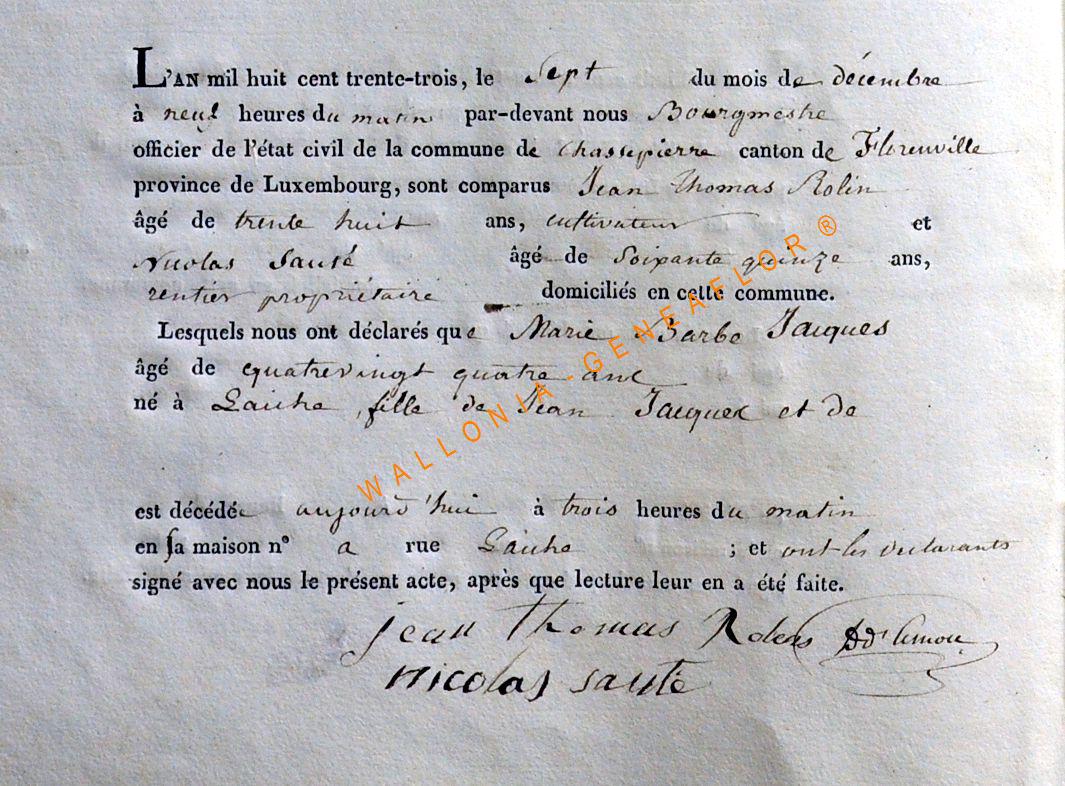 L'AN mil huit cent trente-trois, le Sept du mois de décembre
à neuf heures du matin par-devant nous Bourgmestre
officier de l'état civil de la commune de Chassepierre canton de Florenville
province de Luxembourg, sont comparus Jean Thomas Rolin
âgé de trente huit ans, cultivateur et
Nicolas Sauté âgé de Soixante quinze ans,
rentier propriétaire domiciliés en cette commune.
Lesquels nous ont déclarés que Marie Barbe Jacques
âgé de quatrevingt quatre ans
né à Laiche, fille de Jean Jacques et de
est décédée aujourd'hui à trois heures du matin
en sa maison n° a rue Laiche ; et ont les déclarants
signé avec nous le présent acte, après que lecture leur en a été faite.
jean thomas
nicolas sauté
WALLONIA-GENEAFLOR®